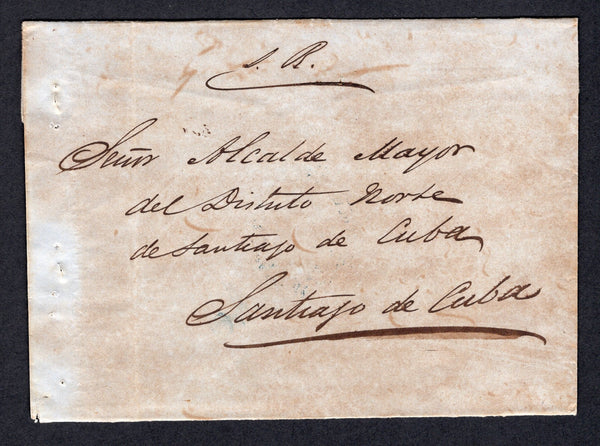 S. R.
Señor Alcalde Mayor
del Distrito Norte
de Santiago de Cuba
Santiago de Cuba